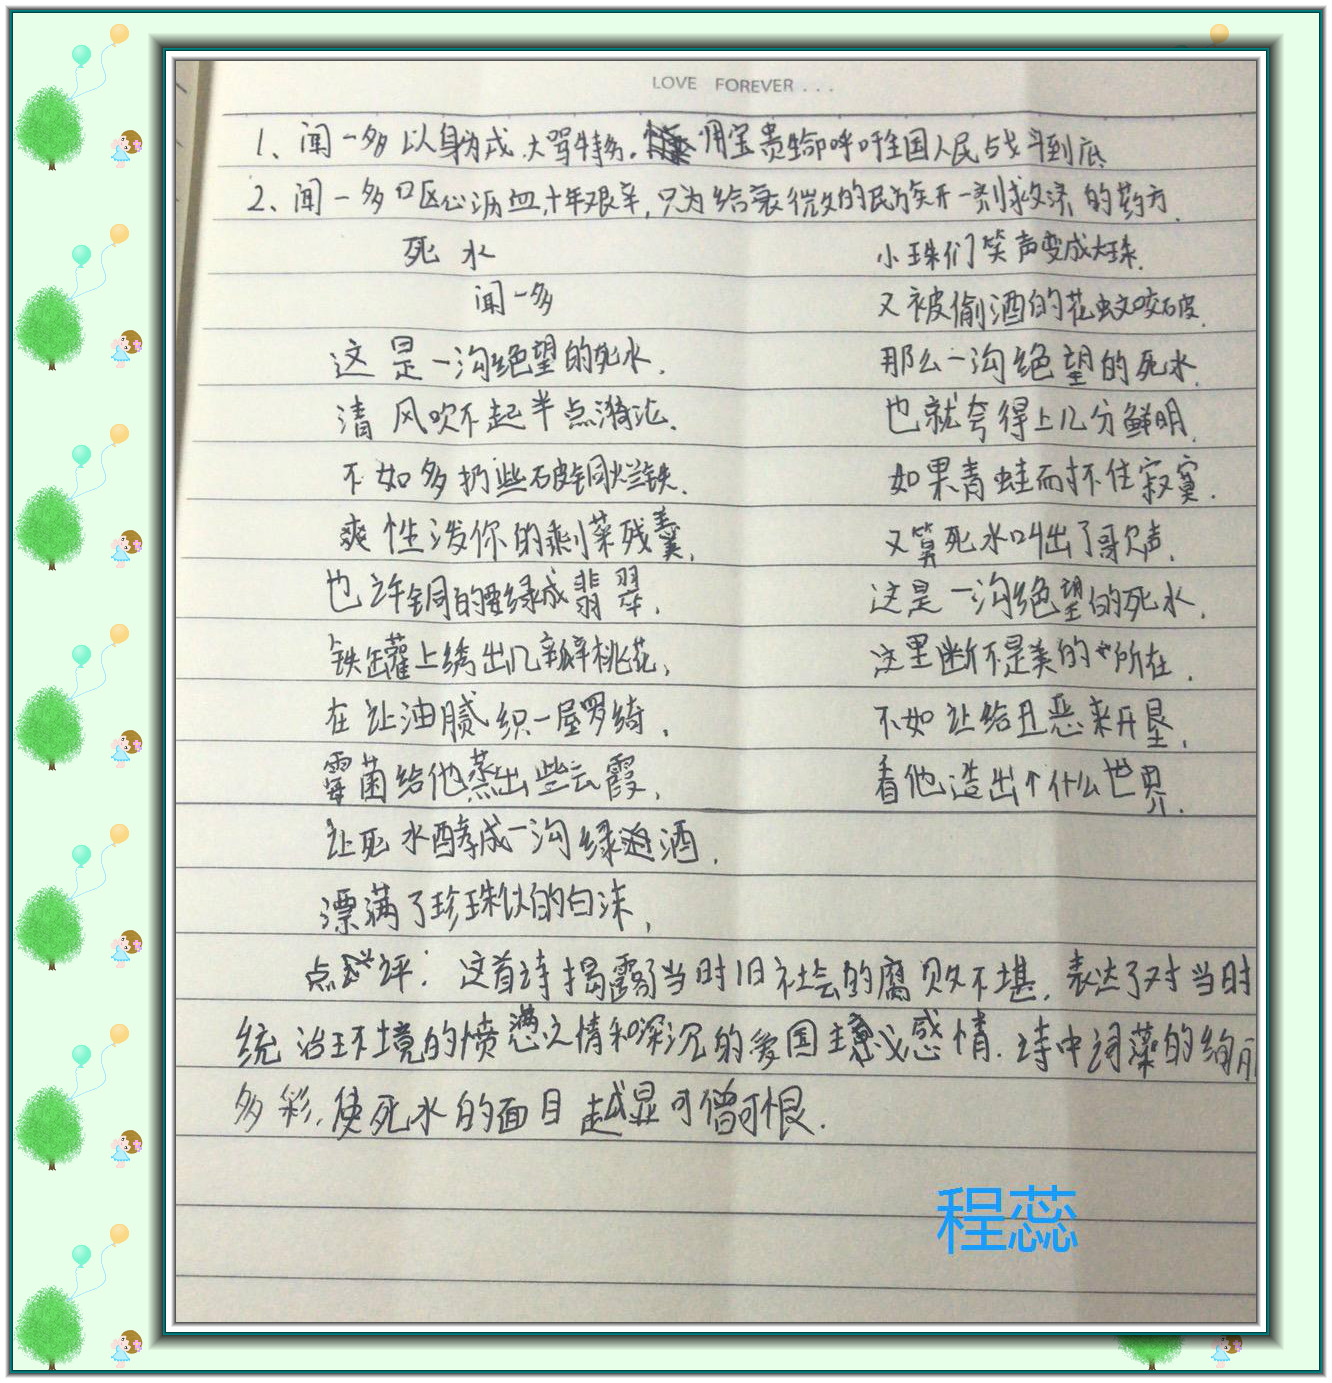 LOVE FOREVER . . .
1、闻一多以身为戎,大骂特务,用宝贵生命呼吁全国人民战斗到底
2、闻一多呕心沥血,十年艰辛,只为给衰微的民族开一剂救济的药方.
死水
闻一多
这是一沟绝望的死水.
清风吹不起半点漪沦.
不如多扔些破铜烂铁.
爽性泼你的剩菜残羹,
也许铜的要绿成翡翠,
铁罐上绣出几瓣桃花,
在让油腻织一层罗绮,
霉菌给他蒸出些云霞,
让死水酵成一沟绿酒,
漂满了珍珠似的白沫,
小珠们笑声变成大珠.
又被偷酒的花蚊咬破.
那么一沟绝望的死水.
也就夸得上几分鲜明.
如果青蛙耐不住寂寞.
又算死水叫出了歌声.
这是一沟绝望的死水.
这里断不是美的所在.
不如让给丑恶来开垦,
看他造出个什么世界.
点评:这首诗揭露了当时旧社会的腐败不堪,表达了对当时
统治环境的愤懑之情和深沉的爱国主义感情.诗中词藻的绚丽
多彩,使死水的面目越显可憎可恨.
程蕊